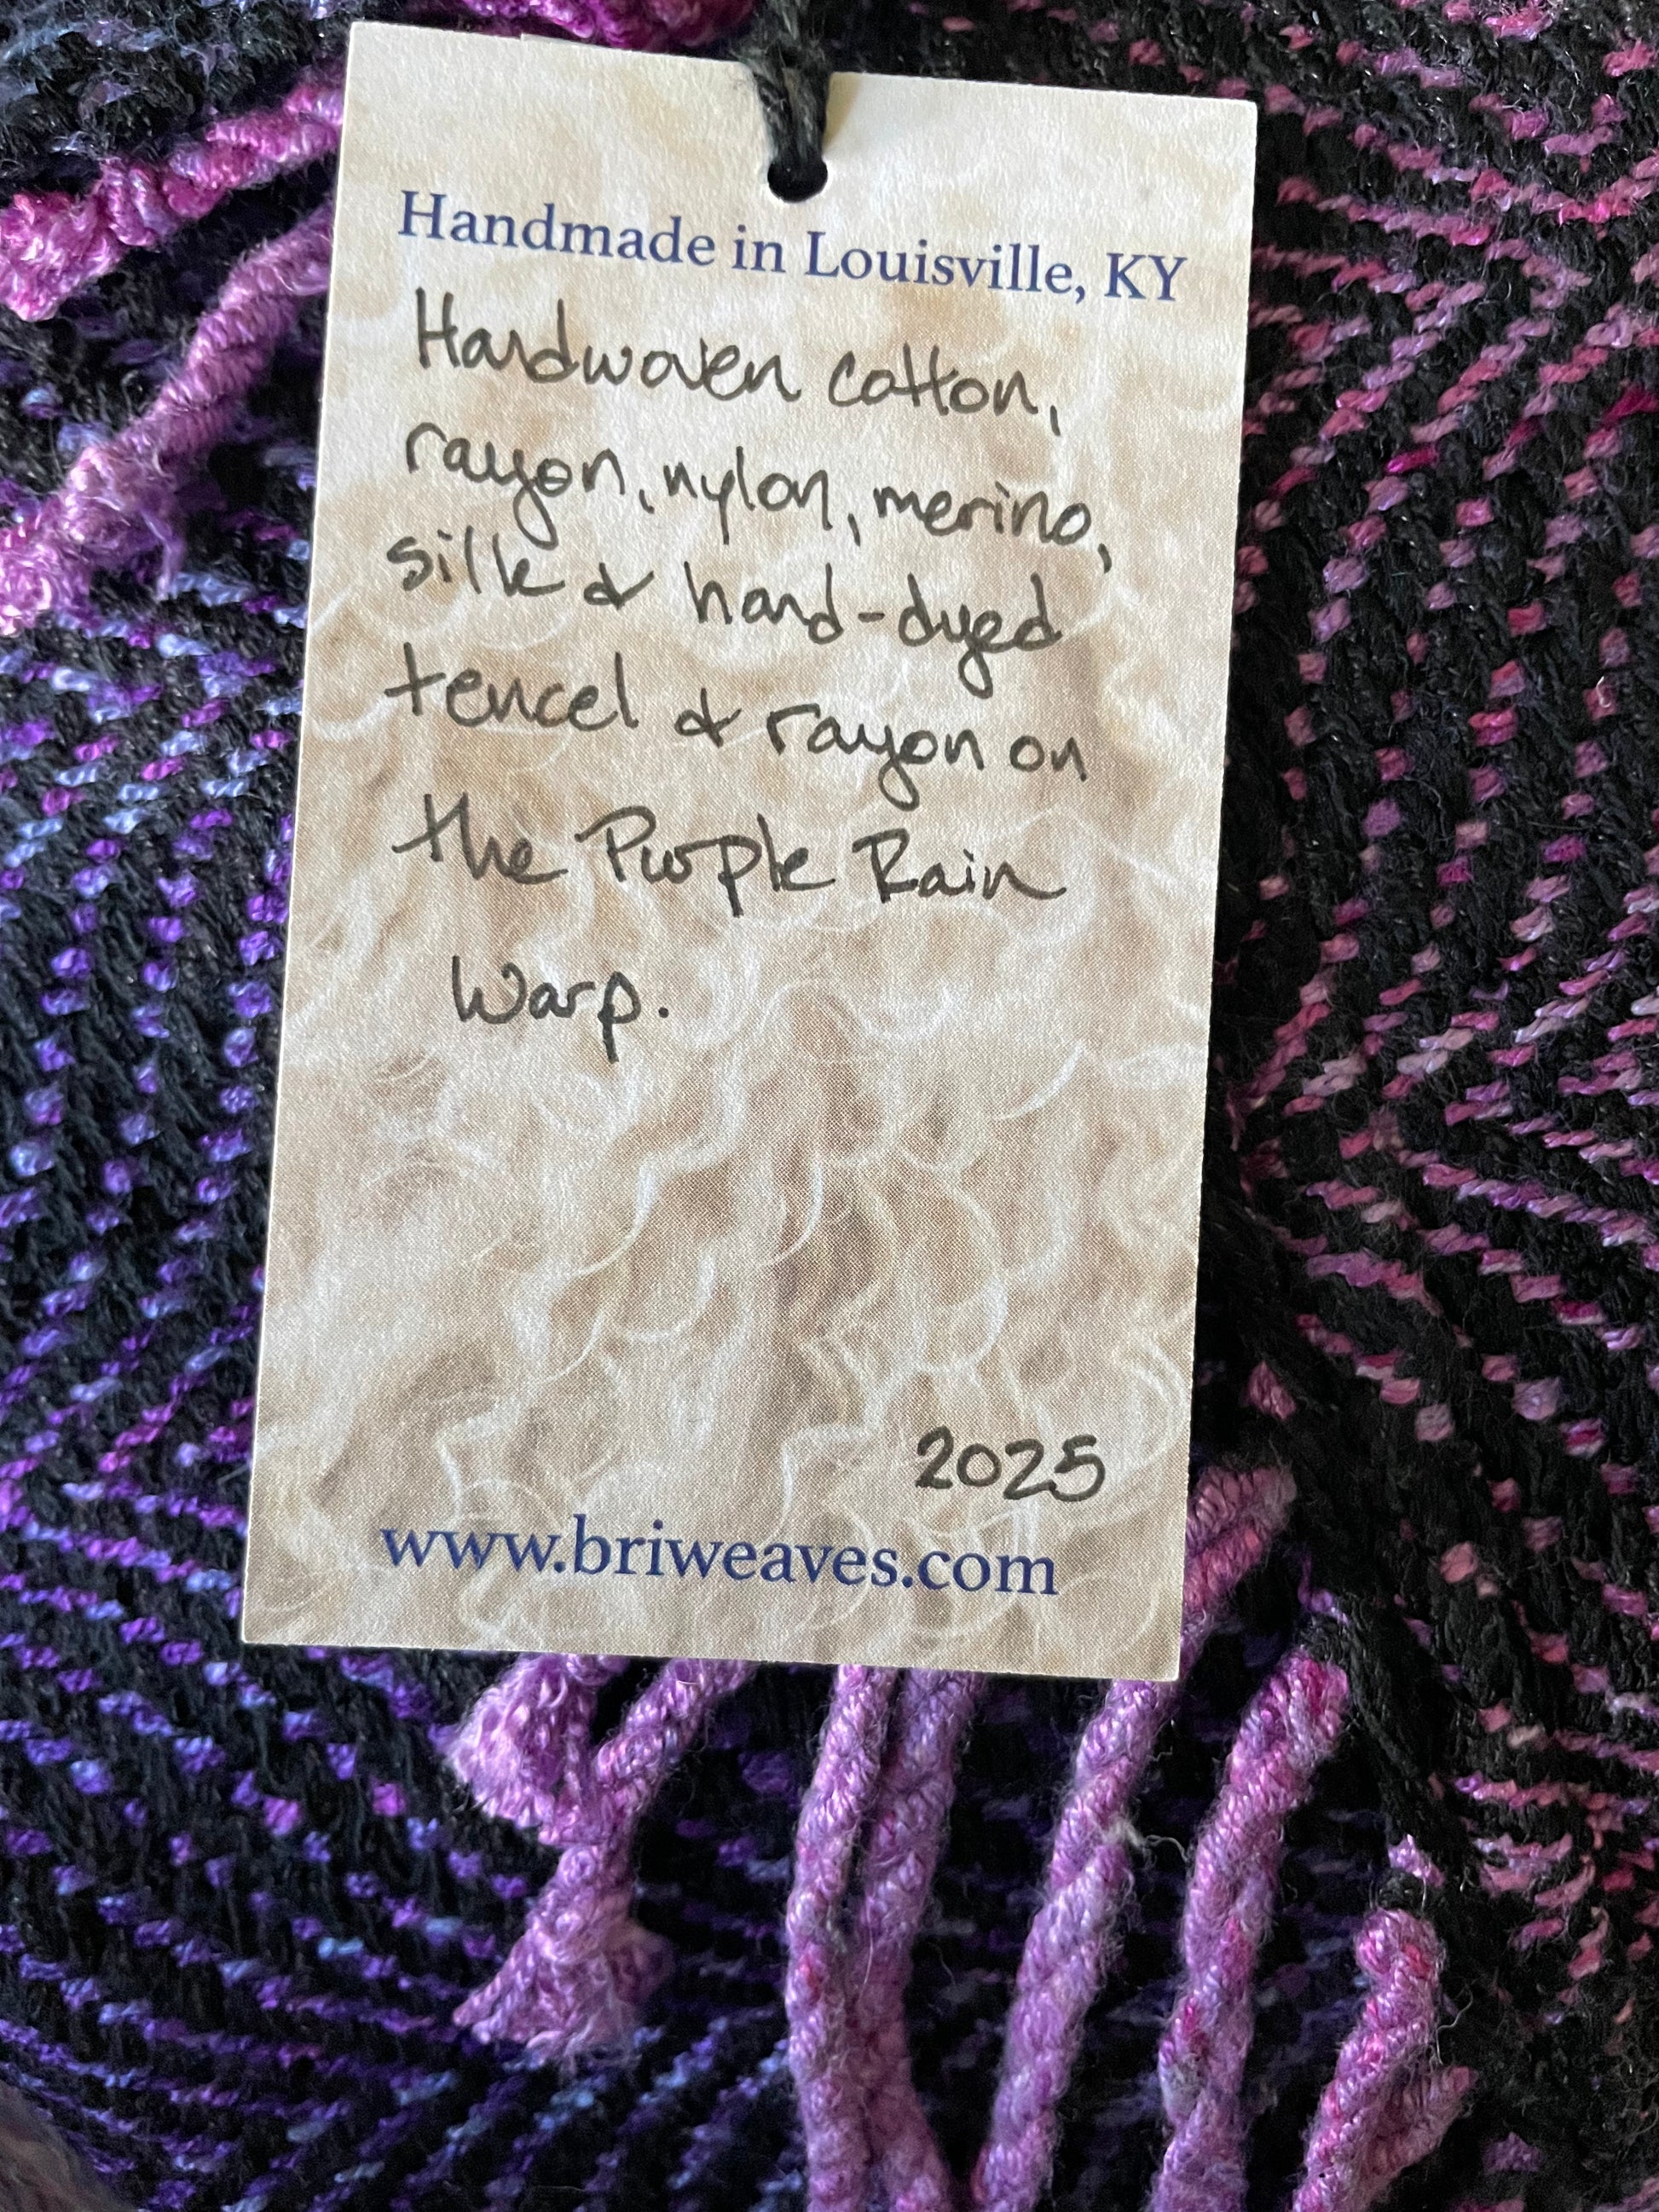 Handmade in Louisville, KY
Handwoven cotton,
rayon, nylon, merino,
silk & hand-dyed
tencel & rayon on
the Purple Rain
Warp.
2025
www.briweaves.com